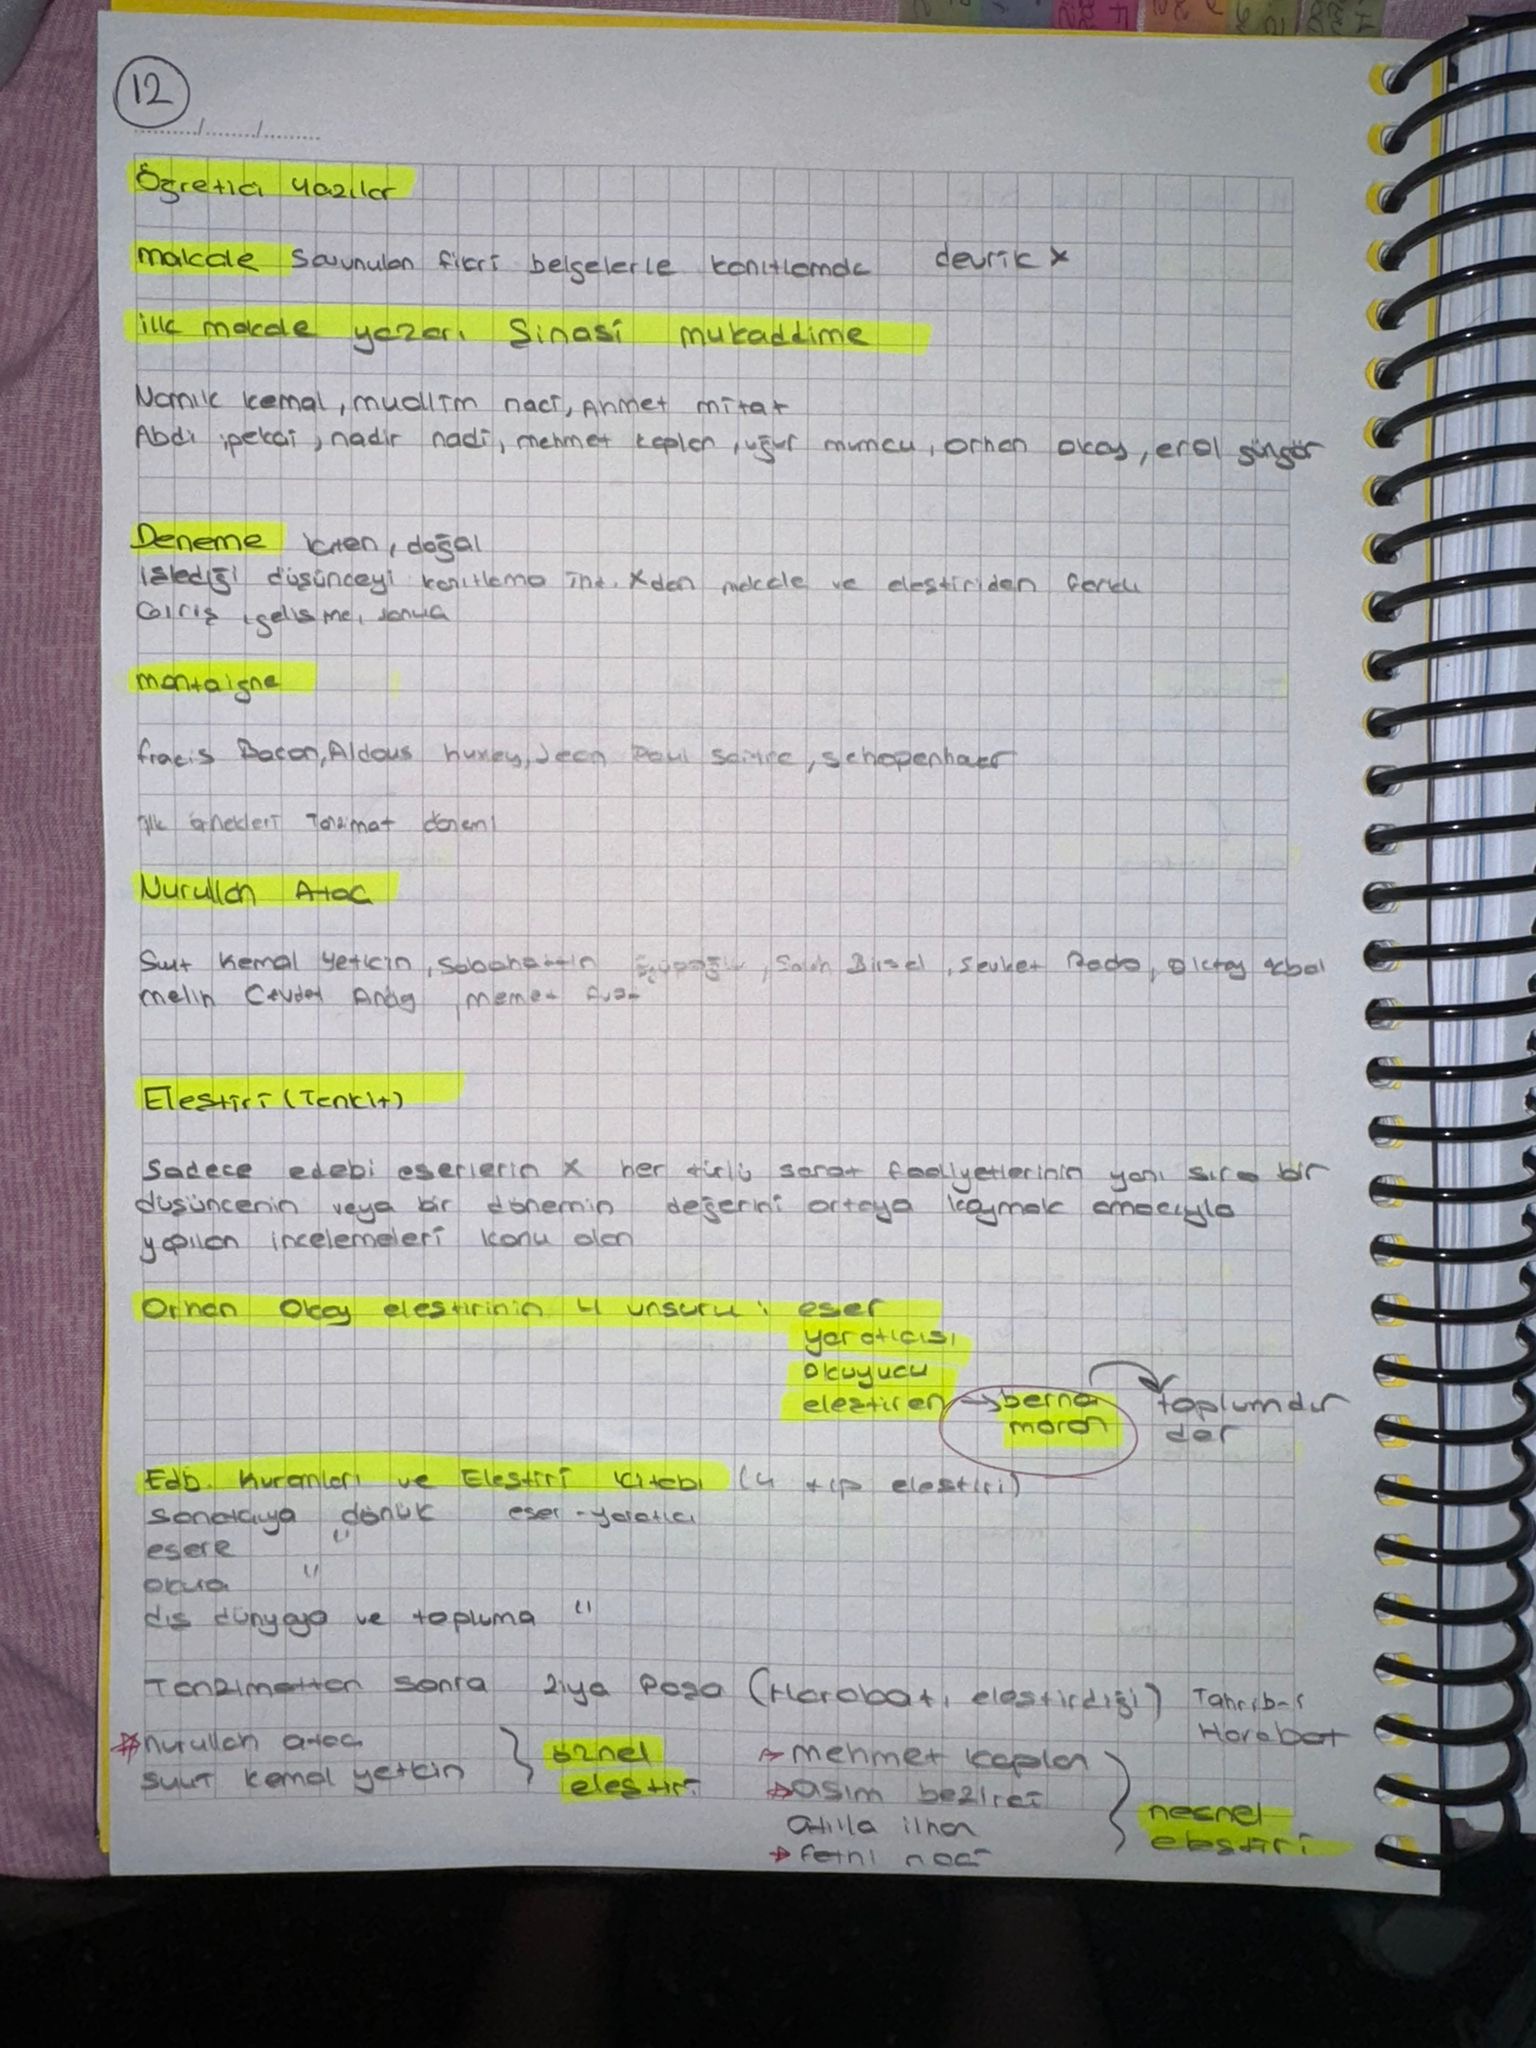 12
Öğretici yazılar
makale savunulan fikri belgelerle kanıtlamada devrik x
ilk makale yazarı Şinasi mukaddime
Namık kemal, muallim naci, Ahmet mitat
Abdi ipekçi, nadir nadi, mehmet kaplan, uğur mumcu, orhan okay, erol güngör
Deneme içten, doğal
işlediği düşünceyi kanıtlama iht. xdan makale ve eleştiriden farklı
Giriş, gelişme, sonuç
montaigne
fracis Bacon, Aldous huxey, Jean Paul Sartre, schopenhaer
ilk örnekleri Tanzimat dönemi
Nurullah Ataç
Suut Kemal Yetkin, Sabahattin, Salah Birsel, Şevket Rado, Oktay Akbal
melih Cevdet Anday, memet Fuat
Eleştiri (Tenkit)
Sadece edebi eserlerin x her türlü sanat faaliyetlerinin yanı sıra bir
düşüncenin veya bir dönemin değerini ortaya koymak amacıyla
yapılan incelemeleri konu alan
Orhan Okay eleştirinin 4 unsuru: eser
yaratıcısı
okuyucu
eleştiren → berna moran toplumdur der
Edb. Kuramları ve Eleştiri kitabı (4 tip eleştiri)
sanatçıya dönük eser-yaratıcı
esere "
okura "
dış dünyaya ve topluma "
Tanzimattan sonra Ziya Paşa (Harabat, eleştirdiği) Tahrib-i Harabat
nurullah ataç
suut kemal yetkin } öznel eleştiri
mehmet kaplan
asım bezirci
atilla ilhan
fethi naci } nesnel eleştiri